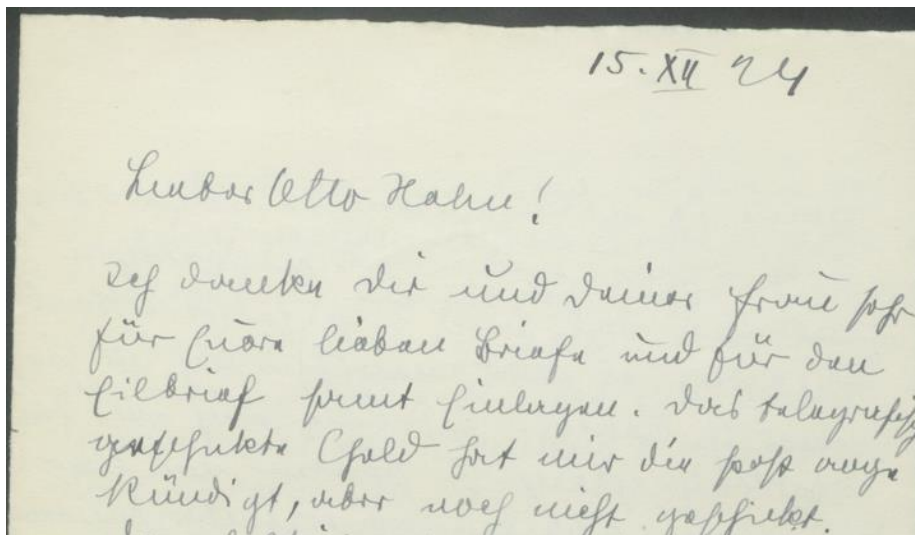 15. XII 24
Lieber Otto Hahn!
Ich danke dir und deiner Frau sehr
für Eure lieben Briefe und für den
Eilbrief samt Einlagen. Das telegrafisch
geschickte Geld hat mir die Post ange
kündigt, aber noch nicht geschickt.